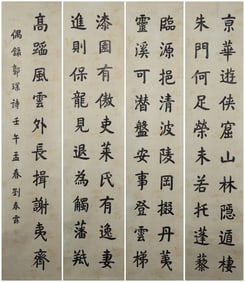 京華遊俠窟山林隱遁棲
朱門何足榮未若托蓬藜
臨源挹清波陵岡掇丹荑
靈溪可潜盤安事登雲梯
漆園有傲吏萊氏有逸妻
進則保龍見退為觸藩羝
高蹈風雲外長揖謝夷齊
偶錄郭璞詩壬午孟春劉春霖